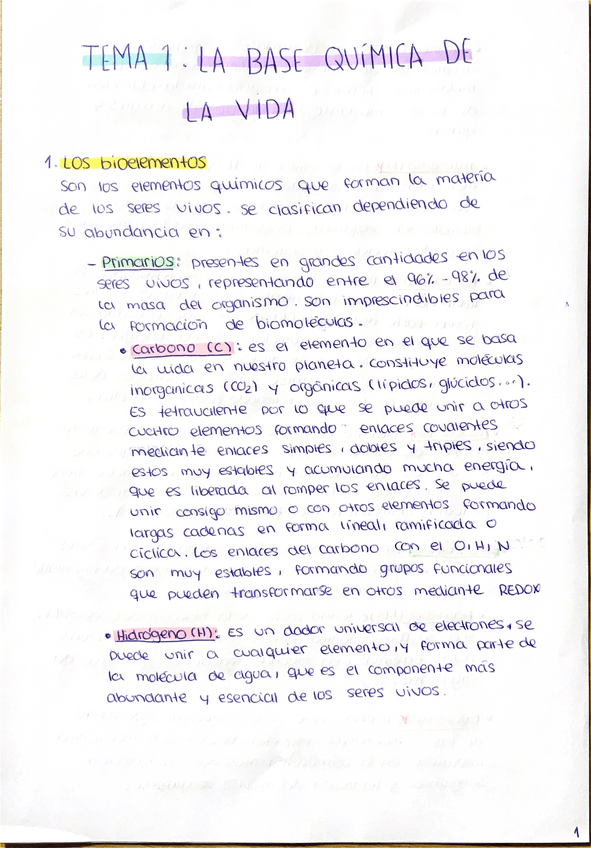 TEMA 1: LA BASE QUÍMICA DE
LA VIDA
1. LOS bioelementos
Son los elementos químicos que forman la materia
de los seres vivos. Se clasifican dependiendo de
su abundancia en:
- Primarios: presentes en grandes cantidades en los
seres vivos, representando entre el 96% - 98% de
la masa del organismo. Son imprescindibles para
la formación de biomoléculas.
• Carbono (C): es el elemento en el que se basa
la vida en nuestro planeta. Constituye moléculas
inorganicas (CO2) y orgánicas (lípidos, glúcidos...).
Es tetravalente por lo que se puede unir a otros
cuatro elementos formando enlaces covalentes
mediante enlaces simples, dobles y triples, siendo
estos muy estables y acumulando mucha energía,
que es liberada al romper los enlaces. Se puede
unir consigo mismo o con otros elementos formando
largas cadenas en forma líneal, ramificada o
cíclica. Los enlaces del carbono con el O, H, N
son muy estables, formando grupos funcionales
que pueden transformarse en otros mediante REDOX
• Hidrógeno (H): Es un dador universal de electrones, se
puede unir a cualquier elemento, y forma parte de
la molécula de agua, que es el componente más
abundante y esencial de los seres vivos.
1